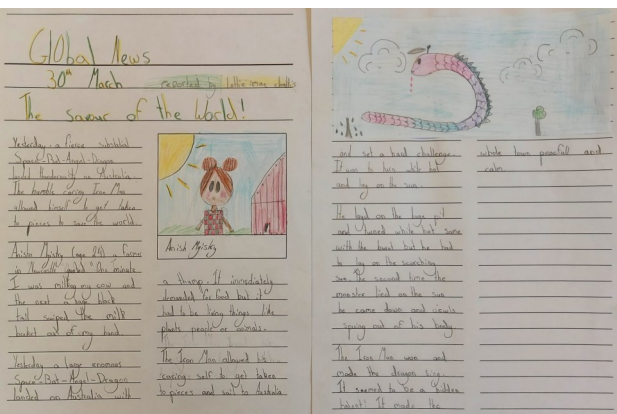 Global News
30th March reported by
The saviour of the World!
Yesterday a fierce
Space-Bat-Angel-Dragon
landed on Australia.
The humble caring Iron Man
allowed himself to get taken
to pieces to save the world.
Farmer
"One minute
I was milking my cow and
the next a huge black
tail swiped the milk
bucket out of my hand.
Yesterday a large enormous
Space-Bat-Angel-Dragon
landed on Australia with
a thump. It immediately
demanded for food but it
had to be living things like
plants people or animals.
The Iron Man allowed his
caring self to get taken
to pieces and sail to Australia
and set a hard challenge.
It was to turn white hot
and lay on the sun.
He layed on the huge pit
and turned white hot same
with the beast but he had
to lay on the scorching
sun. The second time the
monster lied on the sun
he came down and jewels
out of his body.
The Iron Man won and
made the dragon sing.
It seemed to be a hidden
talent! It made the
whole town peacfull and
calm.